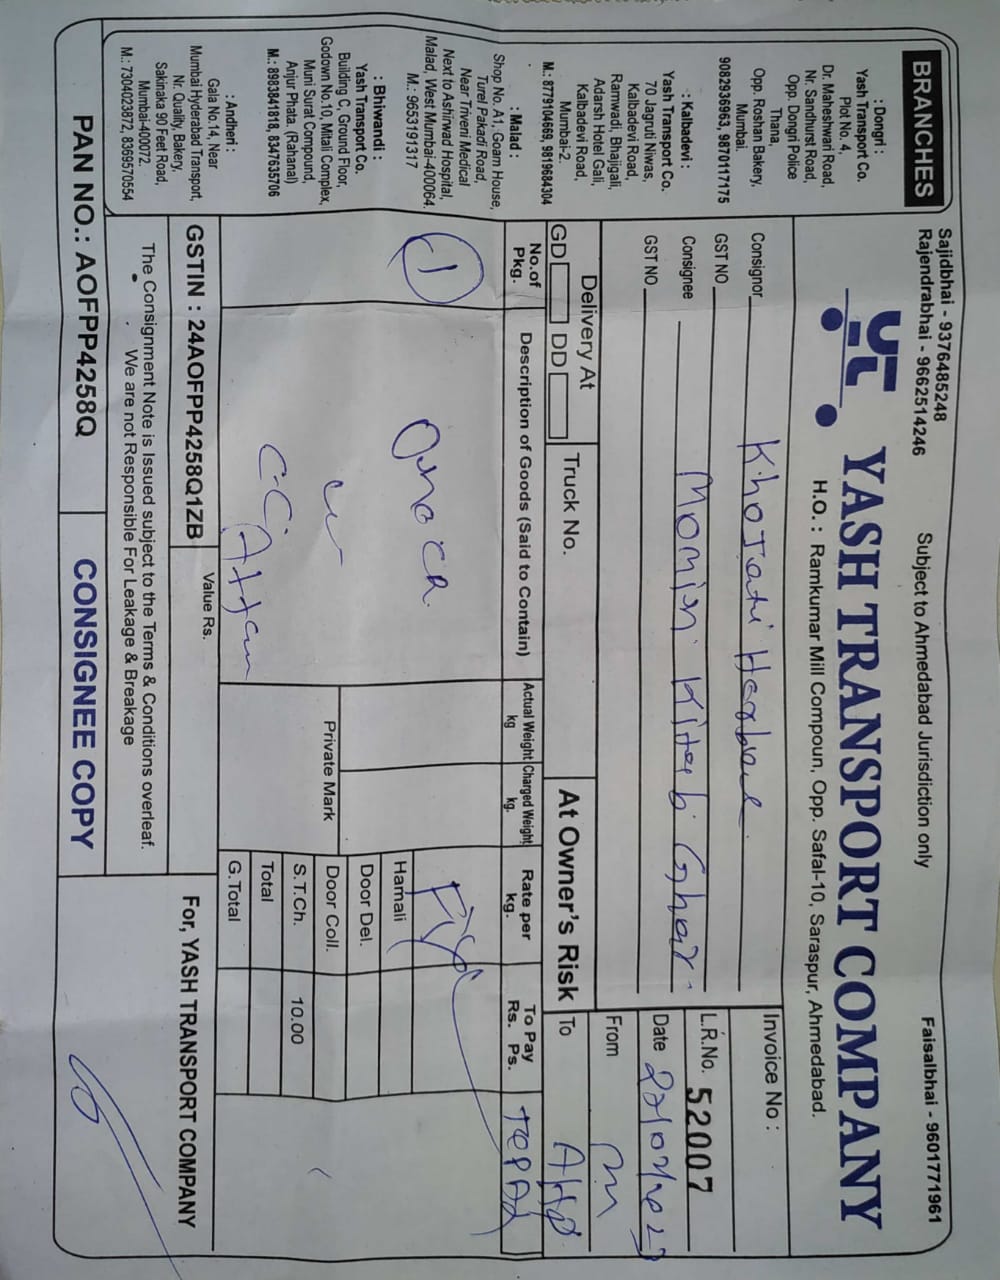 Sajidbhai - 9376485248
Rajendrabhai - 9662514246
Subject to Ahmedabad Jurisdiction only
Faisalbhai - 9601771961
YASH TRANSPORT COMPANY
H.O. : Ramkumar Mill Compoun, Opp. Safal-10, Saraspur, Ahmedabad.
BRANCHES
: Dongri :
Yash Transport Co.
Plot No. 4,
Dr. Maheshwari Road,
Nr. Sandhurst Road,
Opp. Dongri Police
Thana,
Opp. Roshan Bakery,
Mumbai.
9082936963, 9870117175
-: Kalbadevi :
Yash Transport Co.
70 Jagruti Niwas,
Kalbadevi Road,
Ramwadi, Bhajigali,
Adarsh Hotel Gali,
Kalbadevi Road,
Mumbai-2.
M.: 8779104669, 9819684304
: Malad :
Shop No. A1, Goam House,
Turel Pakadi Road,
Near Triveni Medical
Next to Ashirwad Hospital,
Malad, West Mumbai-400064.
M.: 9653191317
: Bhiwandi :
Yash Transport Co.
Building C, Ground Floor,
Godown No.10, Mitali Complex,
Muni Surat Compound,
Anjur Phata, (Rahanal)
M.: 8983841818, 8347635706
: Andheri :
Gala No.14, Near
Mumbai Hyderabad Transport,
Nr. Quality, Bakery,
Sakinaka 90 Feet Road,
Mumbai-400072.
M.: 7304023872, 8369570554
Consignor
GST NO
Consignee Momin Kitab Ghar
GST NO
Invoice No :
L.R.No. 52007
Date
Delivery At
GD DD
Truck No.
At Owner's Risk
From
To AHD
No.of Pkg.
Description of Goods (Said to Contain)
Actual Weight kg
Charged Weight kg.
Rate per kg.
To Pay
Rs. Ps.
TOPAD
1
Fix
Private Mark
Hamali
Door Del.
Door Coll.
S.T.Ch. 10.00
Total
G.Total
GSTIN : 24AOFPP4258Q1ZB
Value Rs.
The Consignment Note is Issued subject to the Terms & Conditions overleaf.
We are not Responsible For Leakage & Breakage
For, YASH TRANSPORT COMPANY
PAN NO.: AOFPP4258Q
CONSIGNEE COPY